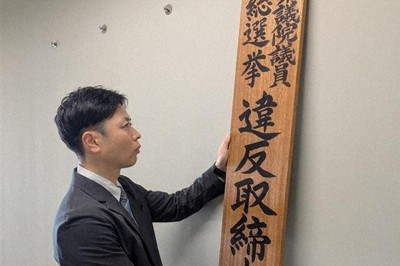 議院議員
総選挙
違反取締